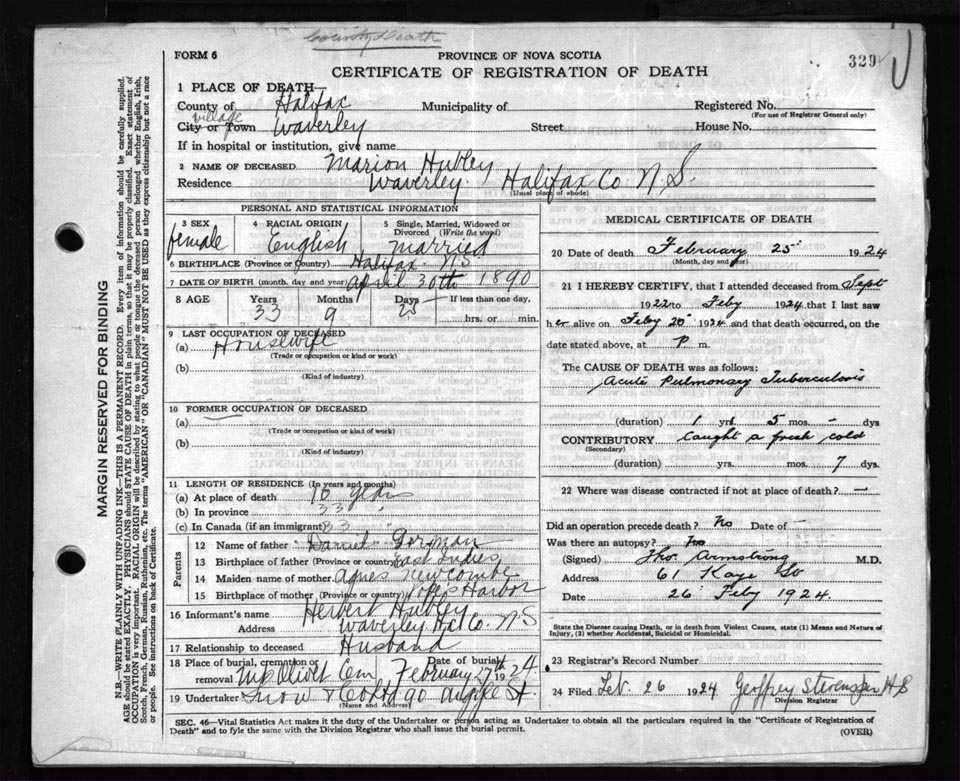 County Death
FORM 6 PROVINCE OF NOVA SCOTIA
CERTIFICATE OF REGISTRATION OF DEATH
329
1 PLACE OF DEATH—
County of Halifax Municipality of Registered No.
(For use of Registrar General only)
village
City or Town Waverley Street House No.
If in hospital or institution, give name
2 NAME OF DECEASED Marion Hubley
Residence Waverley Halifax Co. N.S.
(Usual place of abode)
PERSONAL AND STATISTICAL INFORMATION
3 SEX 4 RACIAL ORIGIN 5 Single, Married, Widowed or Divorced (Write the word)
female English married
6 BIRTHPLACE (Province or country) Halifax N.S
7 DATE OF BIRTH (month, day and year) April 30th 1890
8 AGE Years Months Days If less than one day,
33 9 25 hrs. or min.
9 LAST OCCUPATION OF DECEASED
(a) Housewife
(Trade or occupation or kind or work)
(b)
(Kind of industry)
10 FORMER OCCUPATION OF DECEASED
(a)
(Trade or occupation or kind of work)
(b)
(Kind of industry)
11 LENGTH OF RESIDENCE (In years and months)
(a) At place of death 10 years
(b) In province 33 "
(c) In Canada (if an immigrant) 33
Parents
12 Name of father Daniel Gorman
13 Birthplace of father (Province or country) East Indies
14 Maiden name of mother Agnes Newcombe
15 Birthplace of mother (Province or country) Popes Harbor
16 Informant's name Herbert Hubley
Address Waverley Hx Co. N S
17 Relationship to deceased Husband
18 Place of burial, cremation or removal Mt Olivet Cem Date of burial February 27th 1924
19 Undertaker Snow & Co 90 Argyle St.
(Name and Address)
MEDICAL CERTIFICATE OF DEATH
20 Date of death February 25 1924
(Month, day and year)
21 I HEREBY CERTIFY, that I attended deceased from Sept
1922 to Feby 1924 that I last saw
her alive on Feby 25 1924 and that death occurred, on the
date stated above, at P m.
The CAUSE OF DEATH was as follows:
Acute Pulmonary Tuberculosis
(duration) 1 yrs 5 mos. – dys
CONTRIBUTORY Caught a fresh cold
(Secondary)
(duration) yrs. mos. 7 dys.
22 Where was disease contracted if not at place of death? —
Did an operation precede death? No Date of –
Was there an autopsy? No
(Signed) Thos. Armstrong M.D.
Address 61 Kaye St
Date 26 Feby 1924.
State the Disease causing Death, or in death from Violent Causes, state (1) Means and Nature of
Injury, (2) whether Accidental, Suicidal or Homicidal.
23 Registrar's Record Number
24 Filed Feb. 26 1924 Geoffrey Stevens
Division Registrar
SEC. 46—Vital Statistics Act makes it the duty of the Undertaker or person acting as Undertaker to obtain all the particulars required in the "Certificate of Registration of
Death" and to fyle the same with the Division Registrar who shall issue the burial permit.
(OVER)
MARGIN RESERVED FOR BINDING
N.B.—WRITE PLAINLY WITH UNFADING INK—THIS IS A PERMANENT RECORD. Every item of information should be carefully supplied.
AGE should be stated EXACTLY. PHYSICIANS should STATE CAUSE OF DEATH in plain terms, so that it may be properly classified. Exact statement of
OCCUPATION is very important. RACIAL ORIGIN will be described by stating to what people or tongue the deceased person belonged whether English, Irish,
Scotch, French, German, Russian, Ruthenian, etc. The terms "AMERICAN" OR "CANADIAN" MUST NOT BE USED as they express citizenship but not a race
or people. See instructions on back of Certificate.